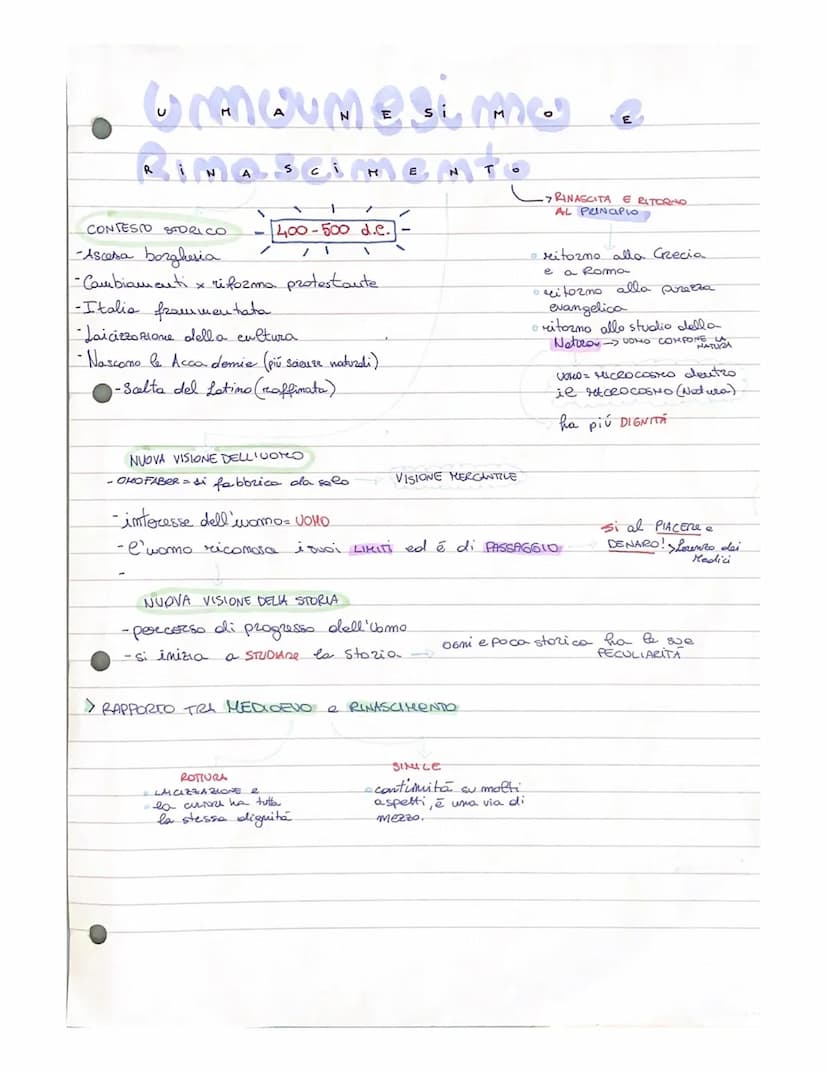 UMANESIMO E
RINASCIMENTO
→ RINASCITA E RITORNO
AL PRINCIPIO
CONTESTO STORICO
400-500 d.C.
-Ascesa borghesia
-Cambiamenti x riforma protestante
-Italia frammentata
-Laicizzazione della cultura
-Nascono le Accademie (più scienze naturali)
-Scelta del Latino (raffinata)
ritorno alla Grecia
e a Roma
ritorno alla purezza
evangelica
ritorno allo studio della
Natura → UOMO COMPONE LA
NATURA
UOMO = MICROCOSMO dentro
il MACROCOSMO (Natura)
ha più DIGNITÀ
NUOVA VISIONE DELL'UOMO
- OMO FABER = si fabbrica da solo → VISIONE MERCANTILE
- interesse dell'uomo = UOMO
- l'uomo riconosce i suoi LIMITI ed é di PASSAGGIO
-
Si al PIACERE e
DENARO! > Lorenzo dei
Medici
NUOVA VISIONE DELLA STORIA
- percorso di progresso dell'Uomo
- si inizia a STUDIARE la storia → OGNI epoca storica ha le sue
PECULIARITÀ
> RAPPORTO TRA MEDIOEVO e RINASCIMENTO
ROTTURA
LAICIZZAZIONE e
la cultura ha tutta
la stessa dignitá
SIMILE
continuitá su molti
aspetti, é una via di
mezzo.